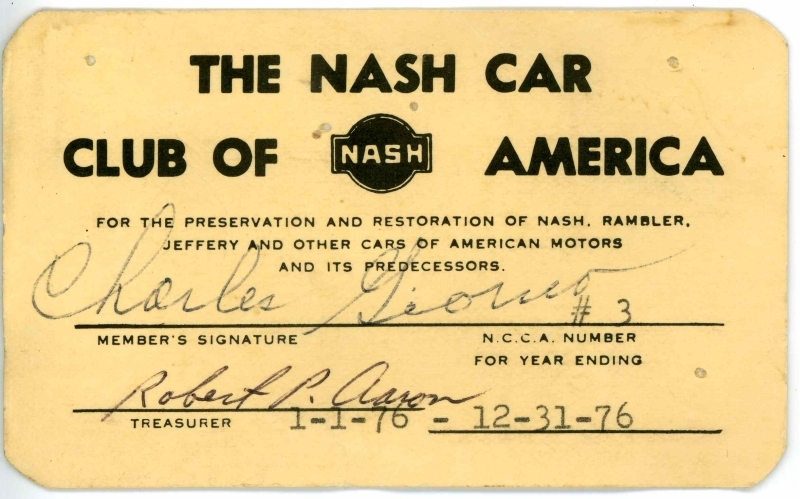 THE NASH CAR
CLUB OF NASH AMERICA
FOR THE PRESERVATION AND RESTORATION OF NASH, RAMBLER,
JEFFERY AND OTHER CARS OF AMERICAN MOTORS
AND ITS PREDECESSORS.
Charles
# 3
MEMBER'S SIGNATURE N.C.C.A. NUMBER
FOR YEAR ENDING
Robert P. Aaron
TREASURER 1-1-76 - 12-31-76